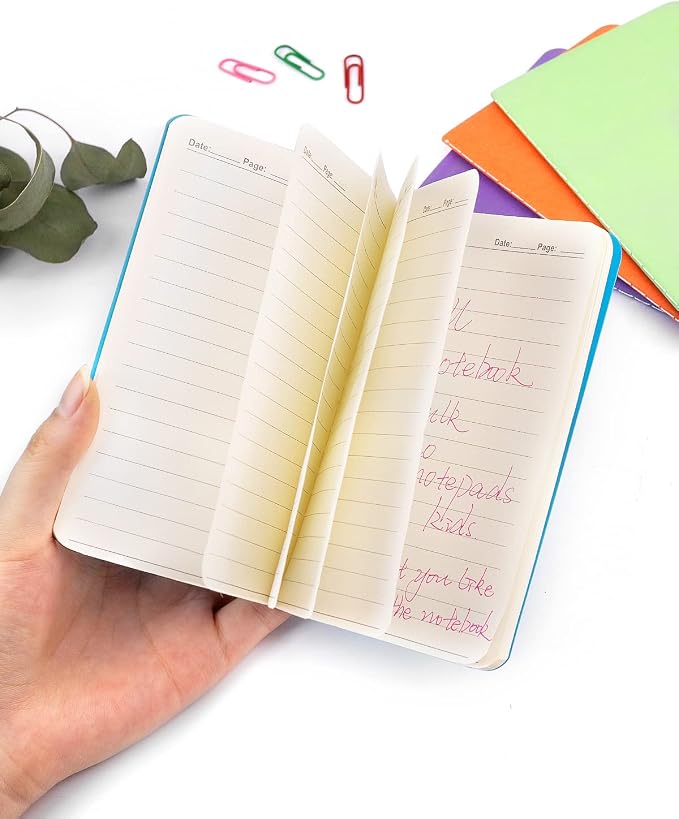 Date:_____ Page:_____
Date:____ Page:____
Date:____ Page:____
Date:_____ Page:_____
otebook
lk
o
notepads
kids.
t you like
the notebook